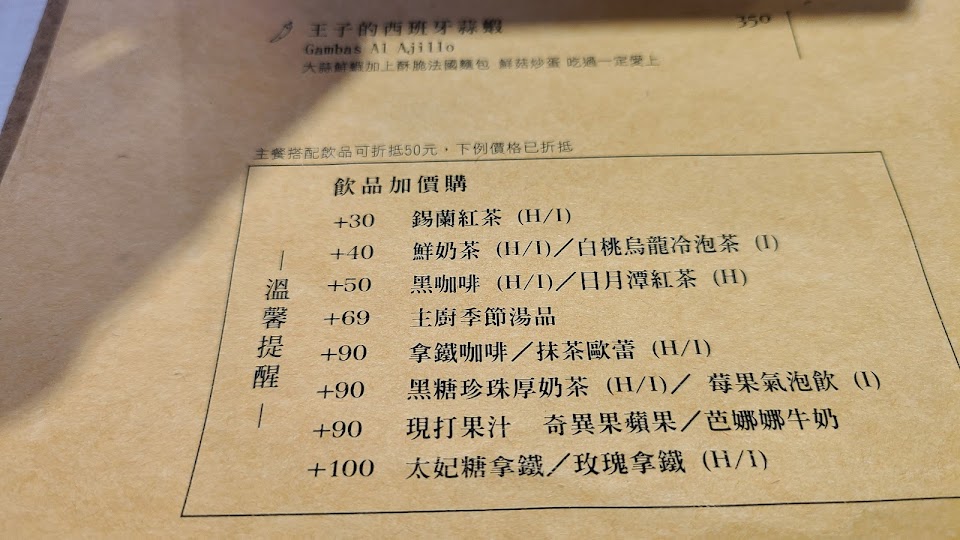 王子的西班牙蒜蝦 350
Gambas Al Ajillo
大蒜鮮蝦加上酥脆法國麵包 鮮菇炒蛋 吃過一定愛上
主餐搭配飲品可折抵50元，下例價格已折抵
飲品加價購
+30 錫蘭紅茶 (H/I)
+40 鮮奶茶 (H/I)／白桃烏龍冷泡茶 (I)
+50 黑咖啡 (H/I)／日月潭紅茶 (H)
+69 主廚季節湯品
+90 拿鐵咖啡／抹茶歐蕾 (H/I)
+90 黑糖珍珠厚奶茶 (H/I)／ 莓果氣泡飲 (I)
+90 現打果汁 奇異果蘋果／芭娜娜牛奶
+100 太妃糖拿鐵／玫瑰拿鐵 (H/I)
｜溫馨提醒｜